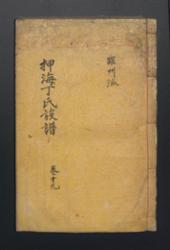 押海丁氏族譜
卷十九
羅州派